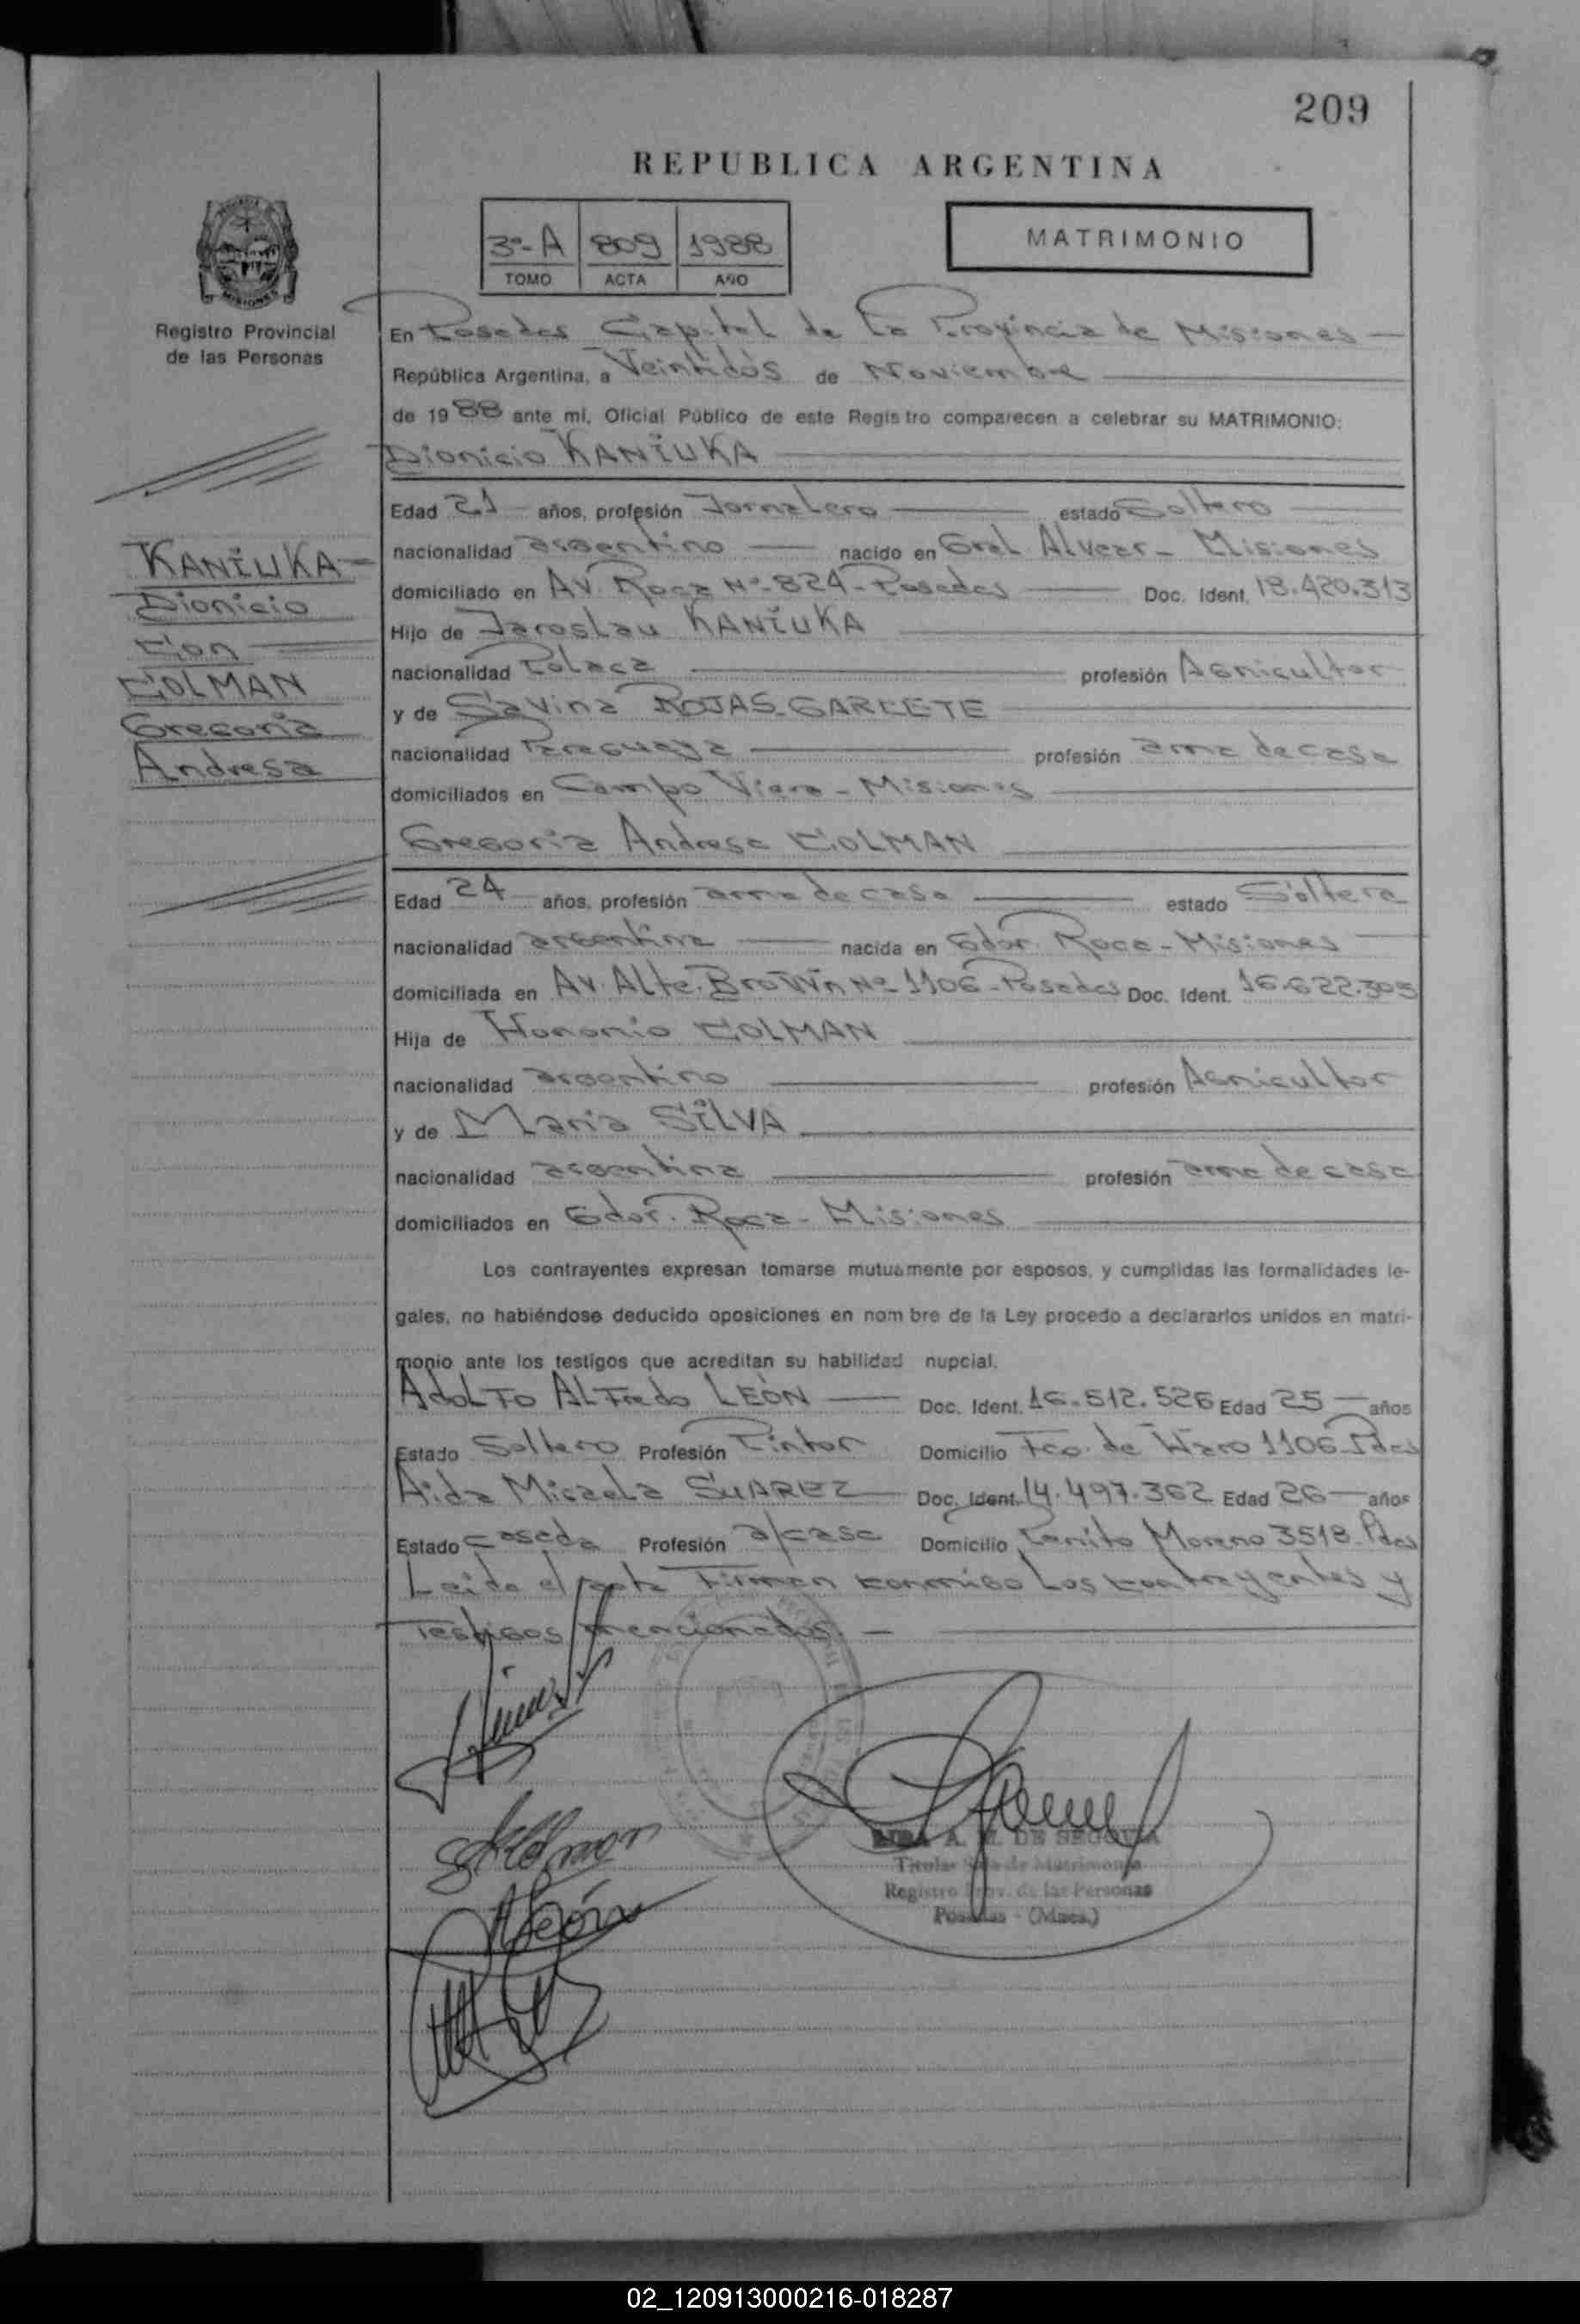 209
REPUBLICA ARGENTINA
3º-A 809 1988
TOMO ACTA AÑO
MATRIMONIO
Registro Provincial
de las Personas
En Posadas Capital de La Provincia de Misiones
República Argentina, a Veintidós de Noviembre
de 1988 ante mi, Oficial Público de este Registro comparecen a celebrar su MATRIMONIO:
Dionicio KANIUKA
Edad 21 años, profesión Jornalero estado Soltero
nacionalidad argentino nacido en Gral. Alvear - Misiones
domiciliado en Av. Roca Nº-824-Posadas Doc. Ident. 18.420.313
Hijo de Jaroslau KANIUKA
nacionalidad Polaca profesión Agricultor
y de Savina ROJAS-GARCETE
nacionalidad Paraguaya profesión ama de casa
domiciliados en Campo Viera - Misiones
Gregoria Andresa COLMAN
KANIUKA
Dionicio
Con
COLMAN
Gregoria
Andresa
Edad 24 años, profesión ama de casa estado Soltera
nacionalidad argentina nacida en Gdor. Roca - Misiones
domiciliada en Av. Alte. Brown Nº 1106-Posadas Doc. Ident. 16.622.305
Hija de Honorio COLMAN
nacionalidad argentino profesión Agricultor
y de Maria SILVA
nacionalidad argentina profesión ama de casa
domiciliados en Gdor. Roca - Misiones
Los contrayentes expresan tomarse mutuamente por esposos, y cumplidas las formalidades le-
gales, no habiéndose deducido oposiciones en nombre de la Ley procedo a declararlos unidos en matri-
monio ante los testigos que acreditan su habilidad nupcial.
Adolfo Alfredo LEÓN Doc. Ident. 16.512.526 Edad 25 años
Estado Soltero Profesión Pintor Domicilio Fco. de Haro 1106-Pdas
Aida Micaela SUAREZ Doc. Ident. 14.497.362 Edad 26 años
Estado casada Profesión a/casa Domicilio Perito Moreno 3518-Pdas
Leida el acta Firman conmigo Los contrayentes y
Testigos mencionados. -
A. M. DE SEGOVIA
Titular Sala de Matrimonio
Registro Prov. de las Personas
Posadas - (Mnes.)
02_120913000216-018287